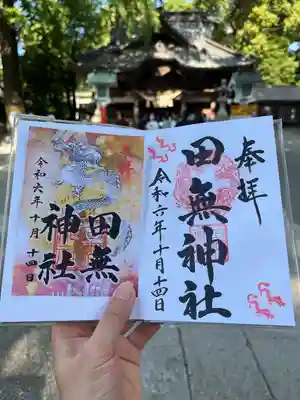 奉拝
田無神社
令和六年十月十四日
田無
神社
令和六年十月十四日